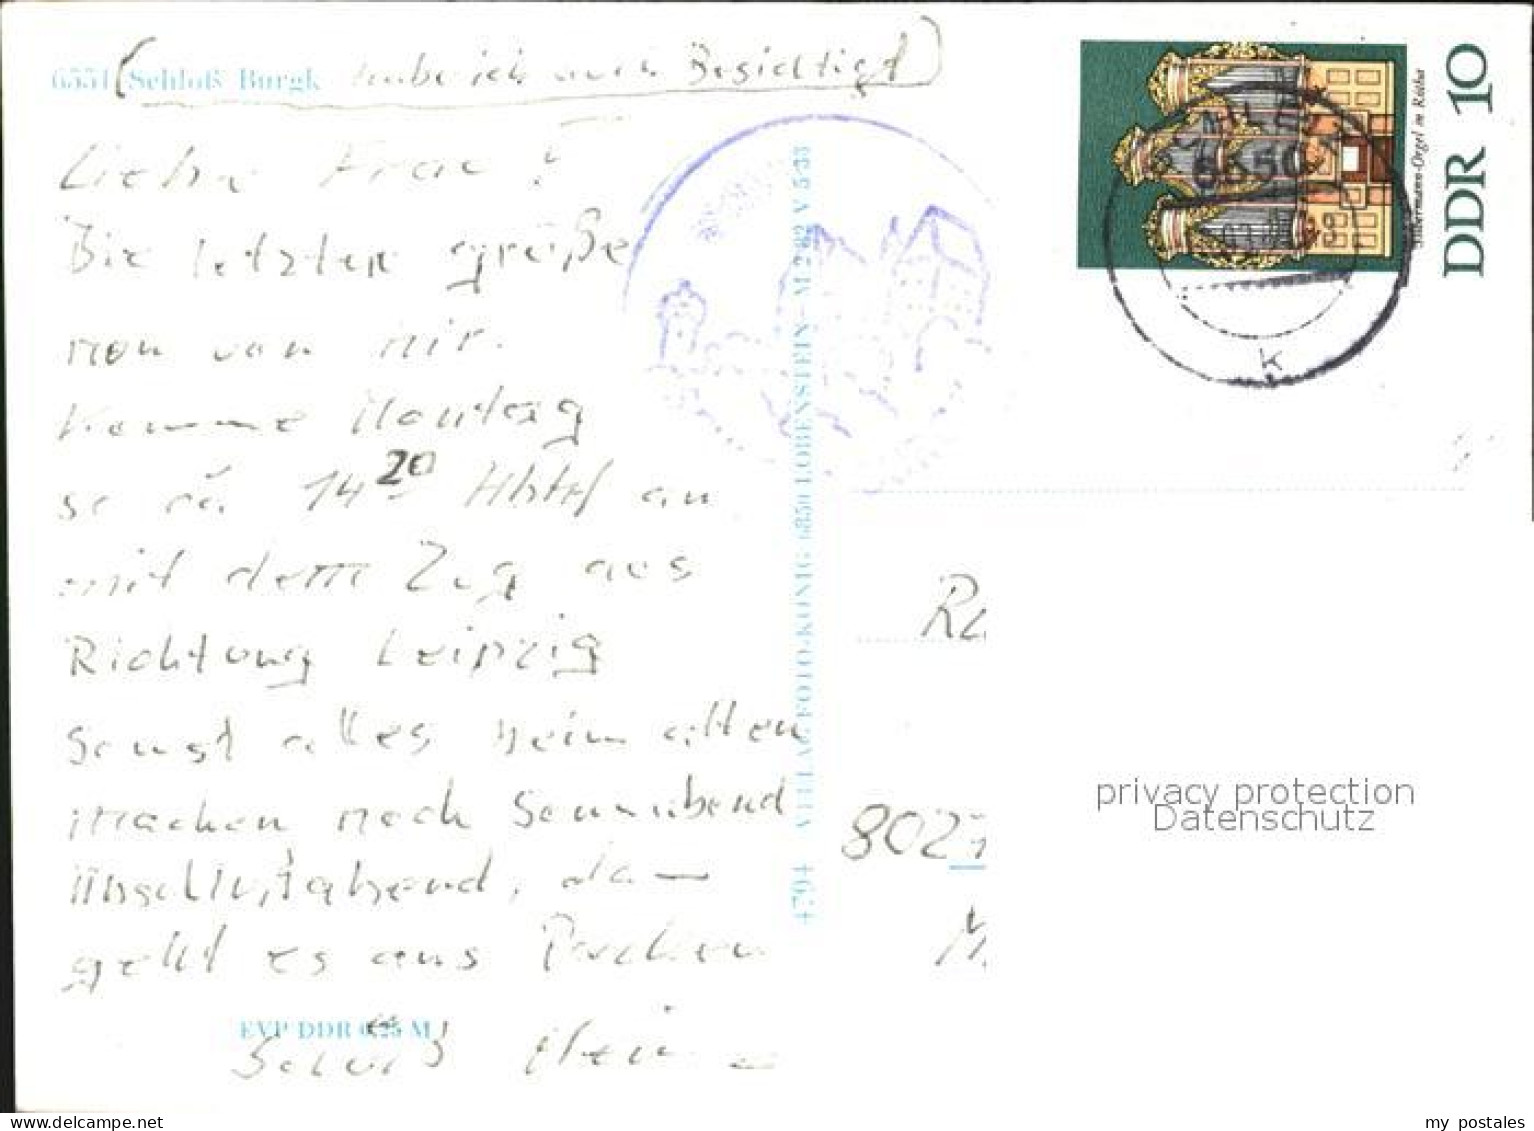 6551 (Schloß Burgk habe ich auch Besichtigt)
Liebe Frau !
Die letzten grüße
nun von mir.
Komme Montag
so ca 14 20 Hbhf an
mit dem Zug aus
Richtung Leipzig
Sonst alles beim alten
machen noch Sonnabend
Abschlußabend, dann
geht es ans Packen
EVP DDR 0,25 M
4794 VERLAG FOTO-KÖNIG 6850 LOBENSTEIN M 2 82 V 5-33
Silbermann-Orgel in Rötha
DDR 10
6550
k
8027
privacy protection
Datenschutz
my postales